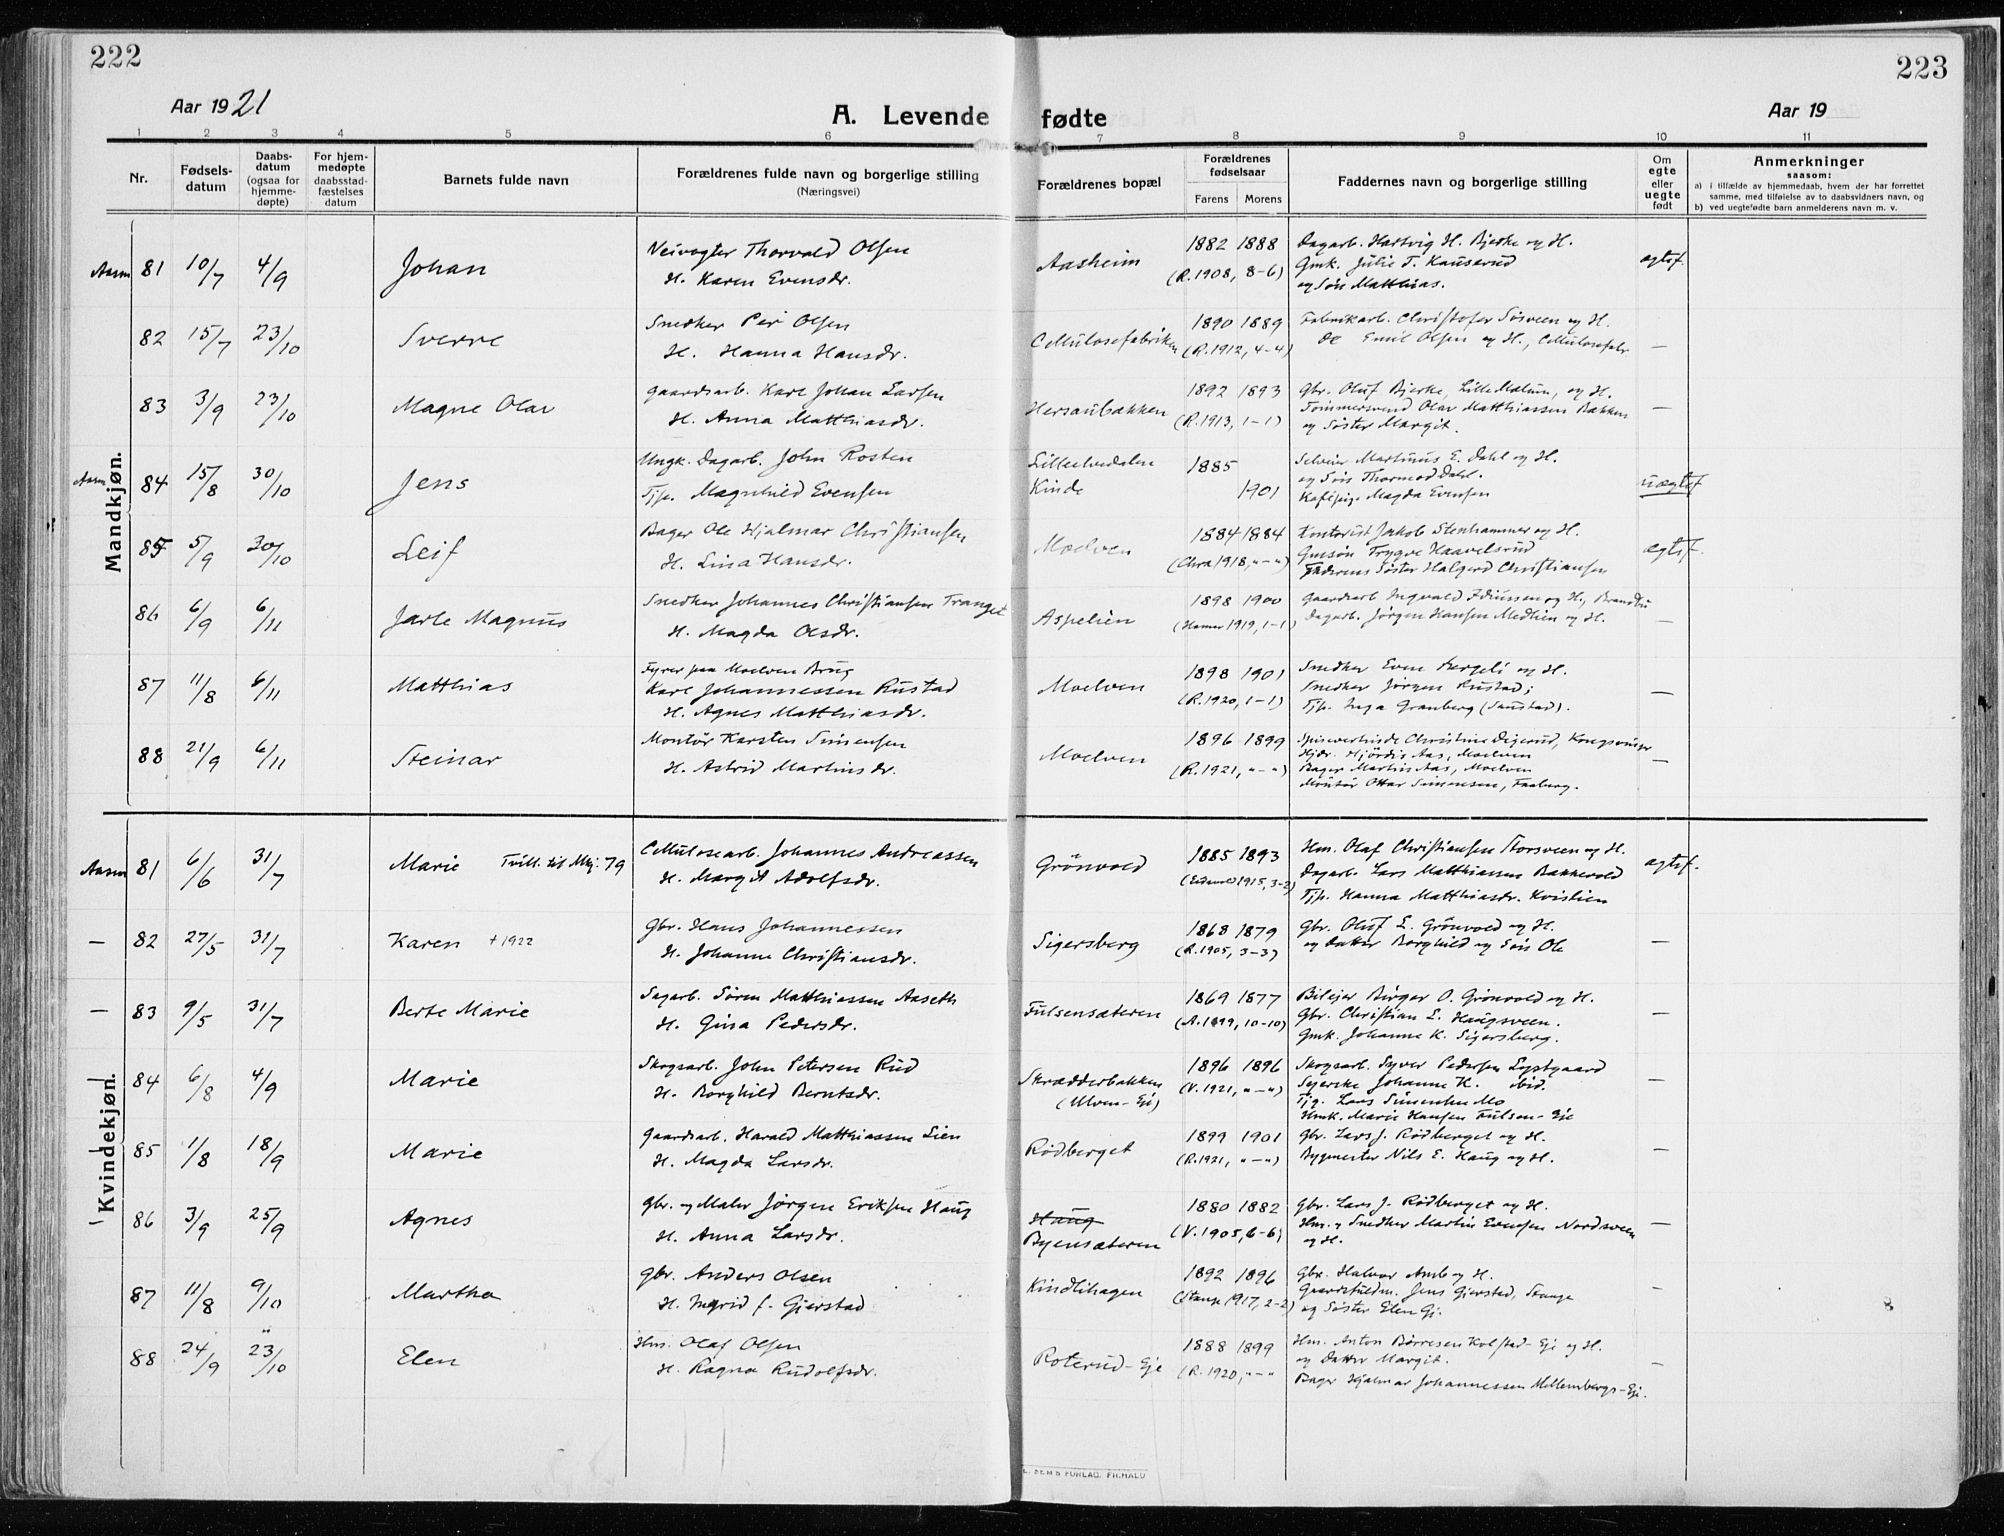 222
223
Aar 1921
A. Levende fødte
Aar 19
1 2 3 4 5 6 7 8 9 10 11
Nr.
Fødsels-
datum
Daabs-
datum
(ogsaa for
hjemme-
døpte)
For hjem-
medøpte
daabsstad-
fæstelses
datum
Barnets fulde navn
Forældrenes fulde navn og borgerlige stilling
(Næringsvei)
Forældrenes bopæl
Forældrenes
fødselsaar
Farens Morens
Faddernes navn og borgerlige stilling
Om
egte
eller
uegte
født
Anmerkninger
saasom:
a) i tilfælde av hjemmedaab, hvem der har forrettet
samme, med tilføielse av to daabsvidners navn, og
b) ved uegtefødte barn anmelderens navn m. v.
Mandkjøn.
Aasm 81 10/7 4/9 Johan
Veivogter Thorvald Olsen
H. Karen Evensdr.
Aasheim
1882 1888
(R. 1908, 8-6)
Dagarb. Hartvig H. Bjerke og H.
Gmk. Julie T. Kauserud
og Søn Matthias.
egtef.
82 15/7 23/10 Sverre
Snedker Per Olsen
H. Hanna Hansdr.
Cellulosefabriken
1890 1889
(R. 1912, 4-4)
Fabrikarb. Christofer Søsveen og H.
Do Emil Olsen og H., Cellulosefabr.
—
83 3/9 23/10 Magne Olav
Gaardsarb. Karl Johan Larsen
H. Anna Matthiasdr.
Hersaubakken
1892 1893
(R. 1913, 1-1)
Gbr. Oluf Bjerke, Lille Mælum, og H.
Tømmersvend Olav Matthiassen Bakken
og Søster Margit.
—
Aasm 84 15/8 30/10 Jens
Ungk. Dagarb. John Rosten
Tjp. Magnhild Evensen
Lilleelvedalen
Kinde
1885
1901
Selveier Martinus E. Dahl og H.
og Søn Thormod Dahl.
Kafépige Magda Evensen
uegtef
85 5/9 30/10 Leif
Bager Ole Hjalmar Christiansen
H. Lina Hansdr.
Moelven
1884 1884
(Chra 1918, „-„)
Kontorist Jakob Stenhammer og H.
Gmsøn Trygve Haavelsrud
Faderens Søster Halgerd Christiansen
egtef.
86 6/9 6/11 Jarle Magnus
Snedker Johannes Christiansen Tranget
H. Magda Olsdr.
Aspelien
1898 1900
(Hamar 1919, 1-1)
Dagarb. Jørgen Hansen Medlien og H.
—
87 11/8 6/11 Matthias
Fyrer paa Moelven Brug
Karl Johannessen Rustad
H. Agnes Matthiasdr.
Moelven
1898 1901
(R. 1920, 1-1)
Snedker Even Bergeli og H.
Snedker Jørgen Rustad;
Tjp. Inga Granberg (Saustad).
—
88 21/9 6/11 Steinar
Montør Karsten Simensen
H. Astrid Martinsdr.
Moelven
1896 1899
(R. 1921, „-„)
Spisevertinde Christine Digerud, Kongsvinger
Hjdr. Hjørdis Aas, Moelven
Bager Martin Aas, Moelven
Montør Ottar Simensen, Faaberg.
—
Kvindekjøn.
Aasm 81 6/6 31/7 Marie Tvill. til Mkj. 79
Cellulosearb. Johannes Andreassen
H. Margit Adolfsdr.
Grönvold
1885 1893
(Eidsvold 1915, 3-2)
Hm. Olaf Christiansen Storsveen og H.
Dagarb. Lars Matthiassen Bakkevold
Tjp. Hanna Matthiasdr. Kvislien
egtef.
— 82 27/5 31/7 Karen + 1922
Gbr. Hans Johannessen
H. Johanne Christiansdr.
Sigersberg
1868 1879
(R. 1905, 3-3)
Gbr. Oluf E. Grönvold og H.
og Datter Borghild og Søn Ole
—
— 83 9/5 31/7 Berte Marie
Sagarb. Søren Matthiassen Aaseth
H. Gina Pedersdr.
Fulsensæteren
1869 1877
(A. 1899, 10-10)
Bileier Birger O. Grönvold og H.
Gbr. Christian E. Haugsveen.
Gmk. Johanne K. Sigersberg.
—
84 6/8 4/9 Marie
Skogsarb. John Petersen Rud
H. Borghild Berntsdr.
Skrædderbakken
(Ulven-Ej)
1896 1896
(V. 1921, „-„)
Skogsarb. Syver Pedersen Lystgaard
Syerske Johanne K. ibid.
Tjg. Lars Simensen Mo
Hmk. Marie Hansen Fulsen-Eje
—
85 1/8 18/9 Marie
Gaardsarb. Harald Matthiassen Lien
H. Magda Larsdr.
Rødberget
1899 1901
(R. 1921, „-„)
Gbr. Lars J. Rødberget og H.
Bygmester Nils E. Haug og H.
—
86 3/9 25/9 Agnes
Gbr. og Maler Jørgen Eriksen Haug
H. Anna Larsdr.
Haug
Byensæteren
1880 1882
(V. 1905, 6-6)
Gbr. Lars J. Rødberget og H.
Hm. og Snedker Martin Evensen Nordsveen
og H.
—
87 11/8 9/10 Martha
Gbr. Anders Olsen
H. Ingrid f. Gjerstad
Kindlihagen
1892 1896
(Stange 1917, 2-2)
Gbr. Halvor Amb og H.
Gaardsfuldm. Jens Gjerstad, Stange
og Søster Elen Gj.
—
88 24/9 23/10 Elen
Hm. Olaf Olsen
H. Ragna Rudolfsdr.
Roterud-Eje
1888 1899
(R. 1920, „-„
Hm. Anton Børresen Kolstad-Eje og H.
og Datter Margit.
Bager Hjalmar Johannessen Mellembergs-Eje.
—